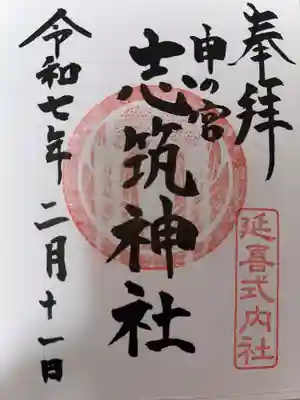 奉拝
申の宮
志筑神社
令和七年二月十一日
延喜式内社